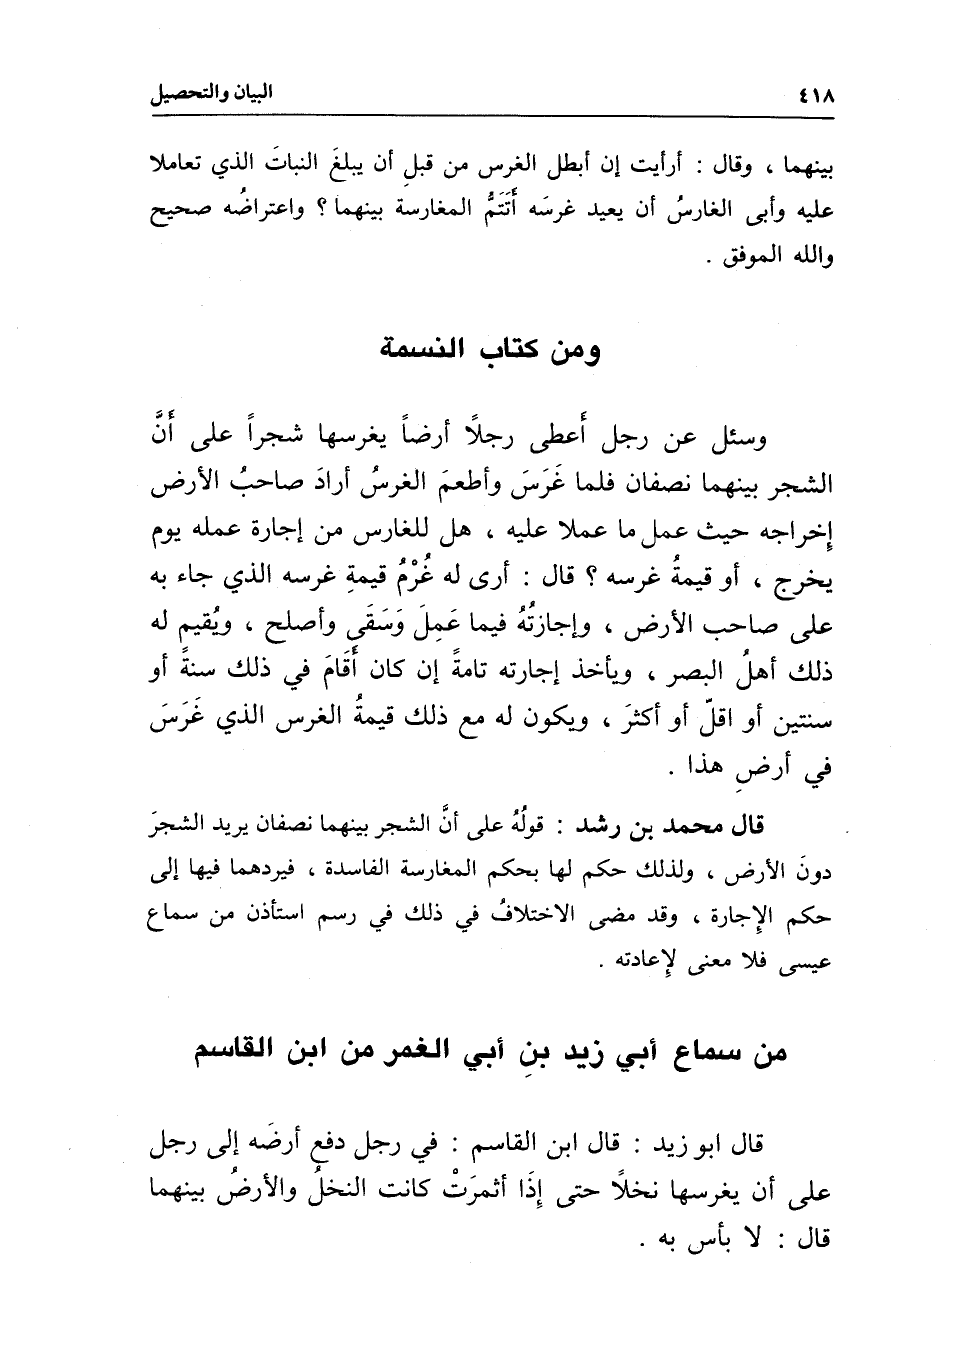 ٤١٨ البيان والتحصيل
بينهما ، وقال : أرأيت إن أبطل الغرس من قبل أن يبلغَ النباتَ الذي تعاملا
عليه وأبى الغارسُ أن يعيد غرسَه أَتَتَمُّ المغارسة بينهما ؟ واعتراضُه صحيح
والله الموفق .
ومن كتاب النسمة
وسئل عن رجل أَعطى رجلًا أرضاً يغرسها شجراً على أَنَّ
الشجر بينهما نصفان فلما غَرَسَ وأطعمَ الغرسُ أرادَ صاحبُ الأرض
إخراجه حيث عمل ما عملا عليه ، هل للغارس من إجارة عمله يوم
يخرج ، أو قيمةُ غرسه ؟ قال : أرى له غُرْمُ قيمةِ غرسه الذي جاء به
على صاحب الأرض ، وإجازتُهُ فيما عَمِلَ وَسَقَى وأصلح ، ويُقيم له
ذلك أهلُ البصر ، ويأخذ إجارته تامةً إن كان أَقَامَ في ذلك سنةً أو
سنتين أو اقلّ أو أكثرَ ، ويكون له مع ذلك قيمةُ الغرس الذي غَرَسَ
في أرضِ هذا .
قال محمد بن رشد : قولُهُ على أنَّ الشجر بينهما نصفان يريد الشجرَ
دونَ الأرض ، ولذلك حكم لها بحكم المغارسة الفاسدة ، فيردهما فيها إلى
حكم الإِجارة ، وقد مضى الاختلافُ في ذلك في رسم استأذن من سماع
عيسى فلا معنى لإِعادته .
من سماع أبي زيد بن أبي الغمر من ابن القاسم
قال ابو زيد : قال ابن القاسم : في رجل دفع أرضَه إلى رجل
على أن يغرسها نخلًا حتى إِذَا أثمرَتْ كانت النخلُ والأرضُ بينهما
قال : لا بأس به .